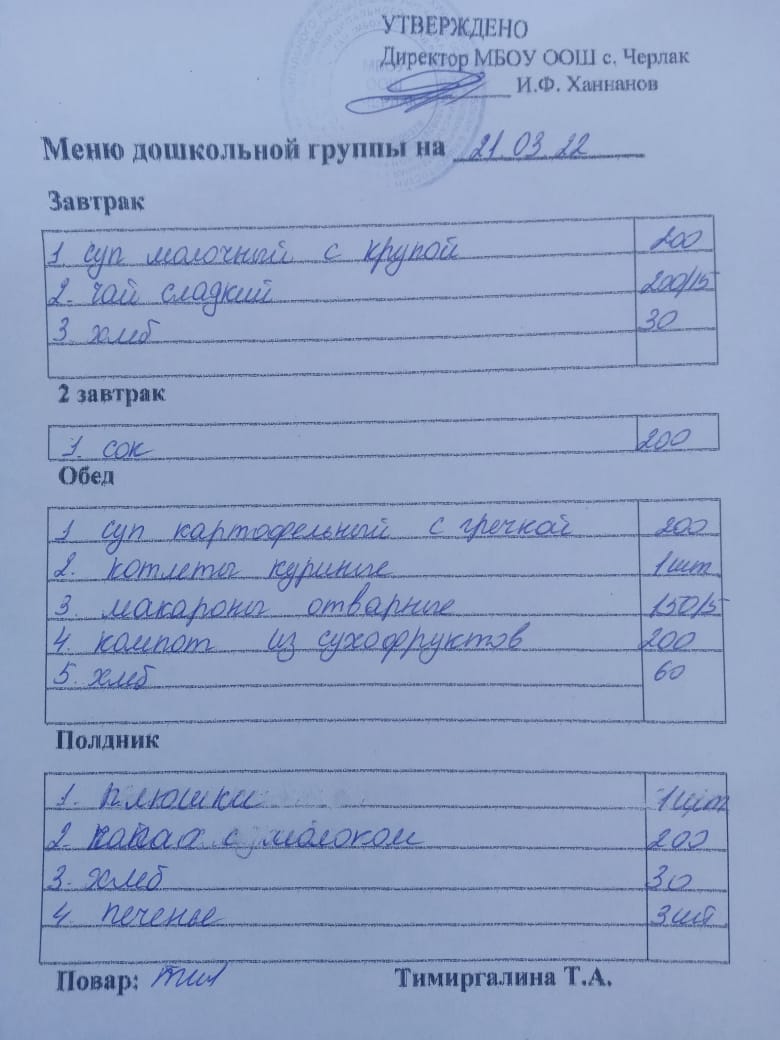 УТВЕРЖДЕНО
Директор МБОУ ООШ с. Черлак
И.Ф. Ханнанов
Меню дошкольной группы на 21.03.22
Завтрак
1. суп молочный с крупой 200
2. чай сладкий 200/15
3 хлеб 30
2 завтрак
1. сок 200
Обед
1 суп картофельный с гречкой 200
2. котлеты куриные 1 шт
3. макароны отварные 150/5
4. компот из сухофруктов 200
5. хлеб 60
Полдник
1. плюшки 1 шт
2. какао с молоком 200
3. хлеб 30
4. печенье 3 шт
Повар: Тимиргалина Т.А.